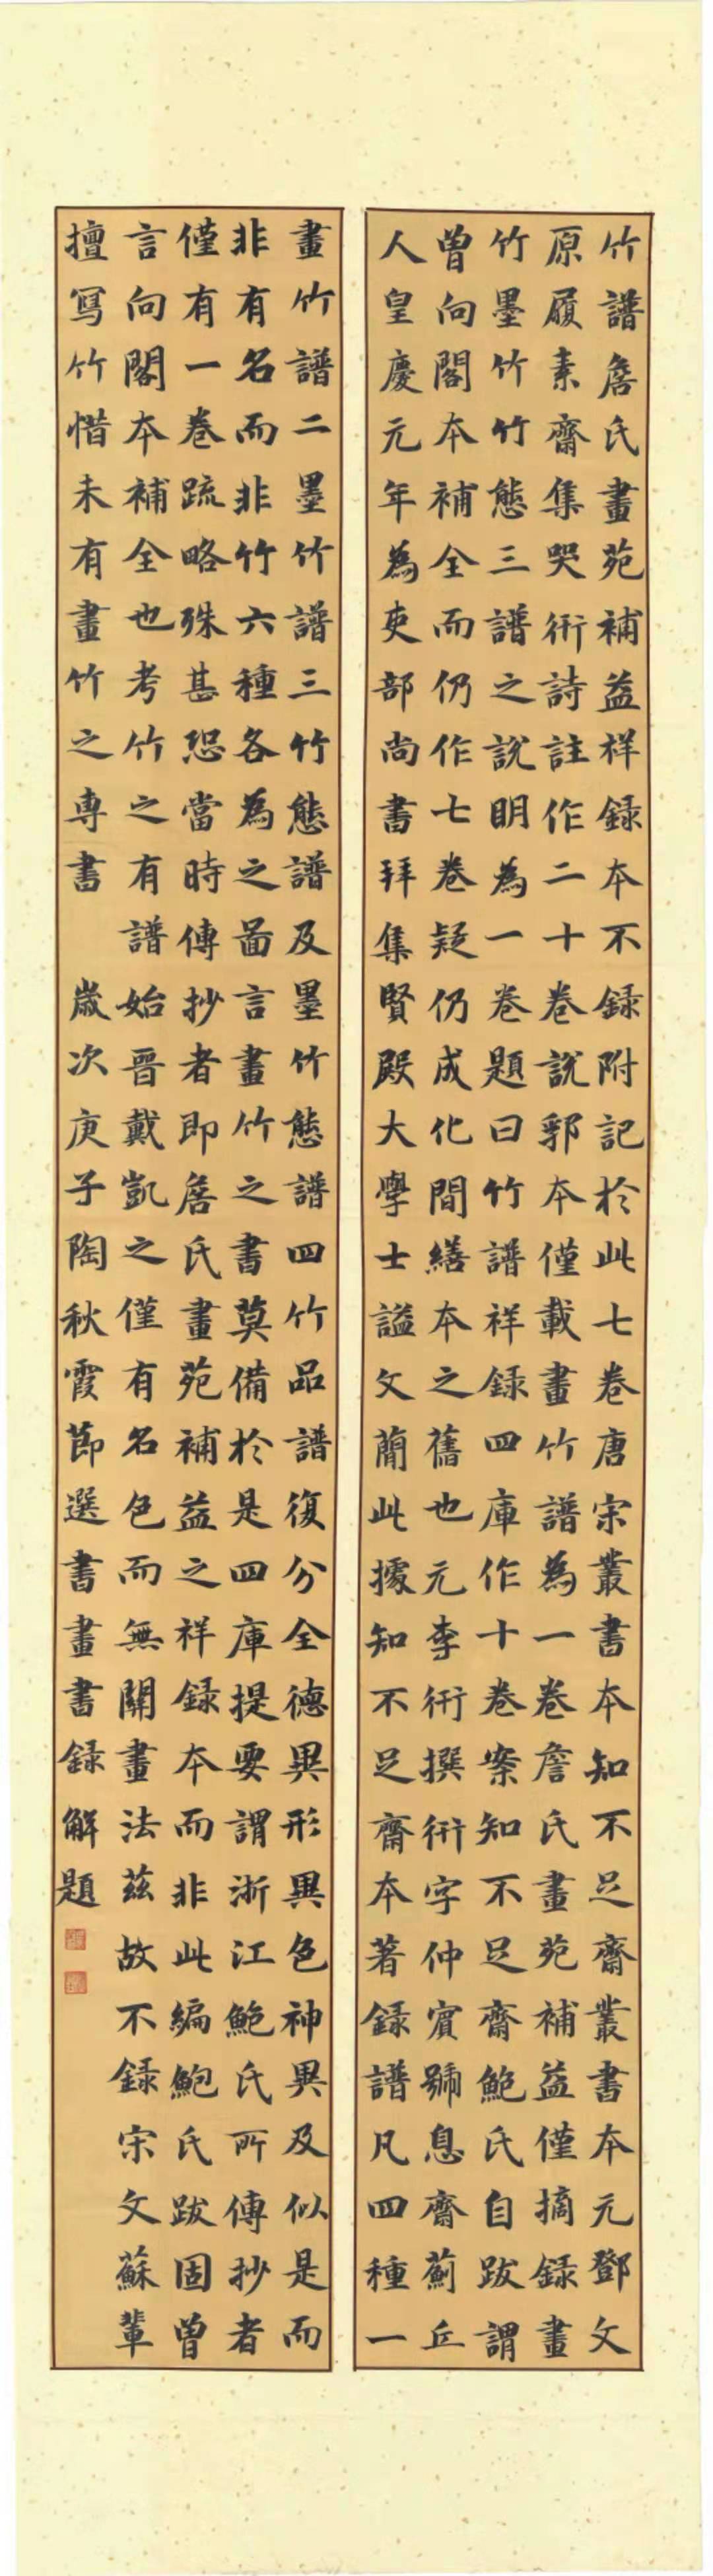 竹譜詹氏畫苑補益样錄本不錄附記於此七卷唐宋叢書本知不足齋叢書本元鄧文
原履素齋集哭衎詩註作二十卷說郛本僅載畫竹譜為一卷詹氏畫苑補益僅摘錄畫
竹墨竹竹態三譜之說明為一卷題曰竹譜祥錄四庫作十卷案知不足齋鮑氏自跋謂
曾向閣本補全而仍作七卷疑仍成化間繕本之舊也元李衎撰衎字仲賓號息齋薊丘
人皇慶元年為吏部尚書拜集賢殿大學士謚文簡此據知不足齋本著錄譜凡四種一
畫竹譜二墨竹譜三竹態譜及墨竹態譜四竹品譜復分全德異形異色神異及似是而
非有名而非竹六種各為之啚言畫竹之書莫備於是四庫提要謂浙江鮑氏所傳抄者
僅有一卷疏略殊甚恐當時傳抄者即詹氏畫苑補益之祥錄本而非此編鮑氏跋固曾
言向閣本補全也考竹之有譜始晉戴凱之僅有名色而無關畫法茲故不錄宋文蘇輩
擅寫竹惜未有畫竹之專書 歲次庚子陶秋霞節選書畫書錄解題